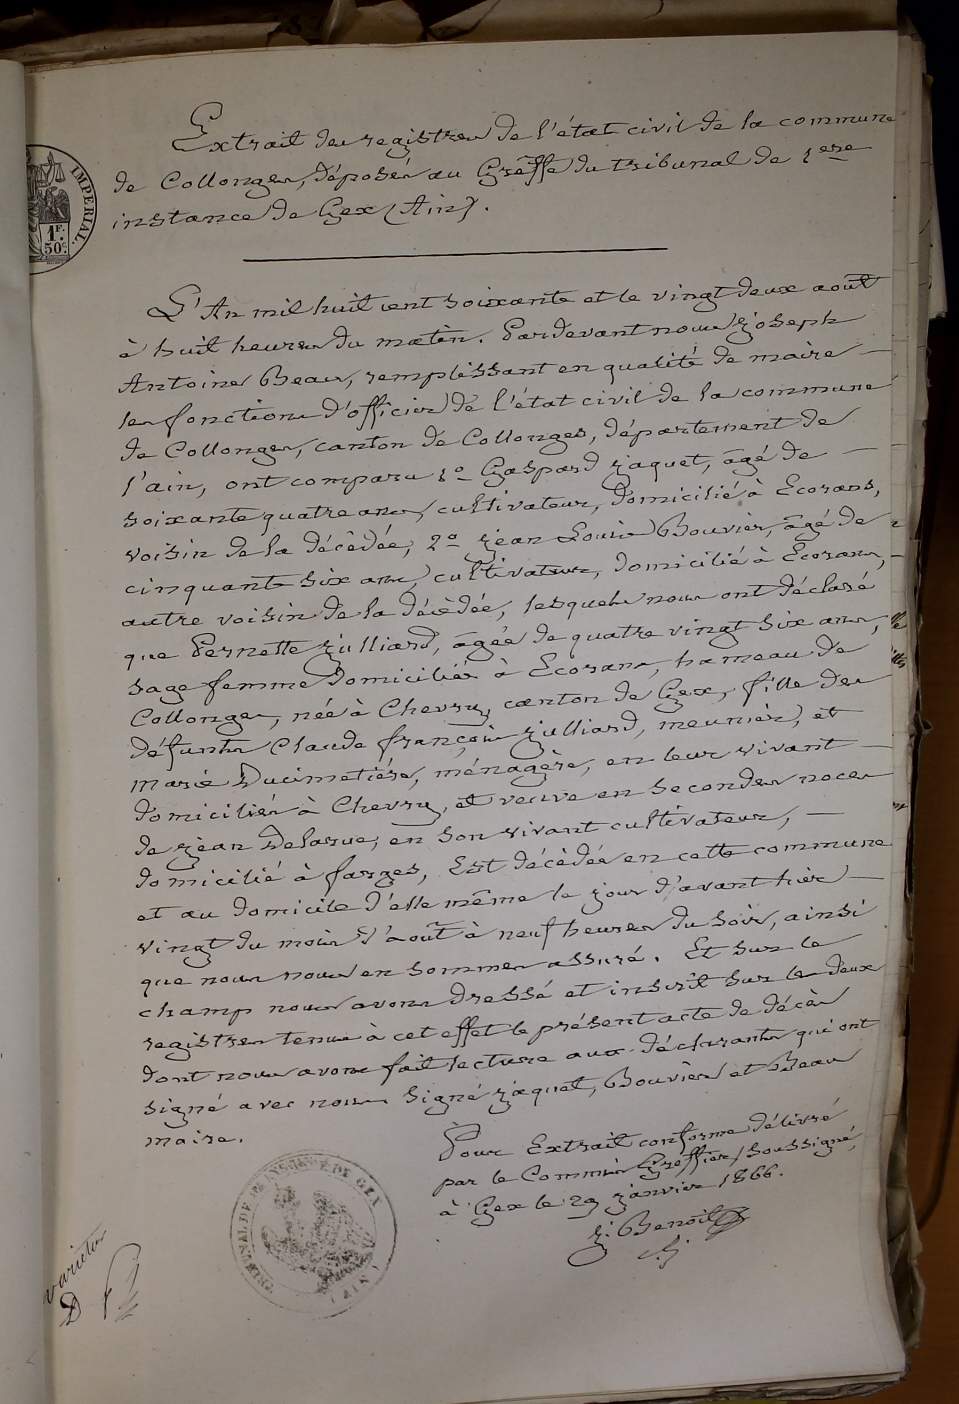 Extrait des registres de l'état civil de la commune
de Collonges, déposés au Greffe du tribunal de 1ere
instance de Gex (Ain).
IMPERIAL.
1F.
50c.
L'An mil huit cent soixante et le vingt deux août
à huit heures du matin. Pardevant nous Joseph
Antoine Beau, remplissant en qualité de maire
les fonctions d'officier de l'état civil de la commune
de Collonges, canton de Collonges, département de
l'ain, ont comparu 1o Gaspard Jaquet, âgé de
soixante quatre ans, cultivateur, domicilié à Ecorans,
voisin de la décèdée, 2o Jean Louis Bouvier, âgé de
cinquante six ans, cultivateur, domicilié à Ecorans,
autre voisin de la décèdée, lesquels nous ont déclaré
que Pernette Julliard, âgée de quatre vingt six ans,
sage femme domiciliée à Ecorans, hameau de
Collonges, née à Chevry, canton de Gex, fille des
défunts Claude françois Julliard, meunier, et
marie Ducimetière, ménagère, en leur vivant
domiciliés à Chevry, et veuve en secondes noces
de Jean Delarue, en son vivant cultivateur,
domicilié à farges, Est décèdée en cette commune
et au domicile d'elle même le jour d'avant hier
vingt du mois d'août à neuf heures du soir, ainsi
que nous nous en sommes assuré. Et sur le
champ nous avons dressé et inscrit sur les deux
registres tenus à cet effet le présent acte de décès
dont nous avons fait lecture aux déclarants qui ont
signé avec nous signé Jaquet, Bouvier et Beau
maire.
Pour Extrait conforme délivré
par le Commis Greffier soussigné,
à Gex le 29 Janvier 1866.
J. Benoit
TRIBUNAL DE 1RE INSTANCE DE GEX
(AIN)
varietur